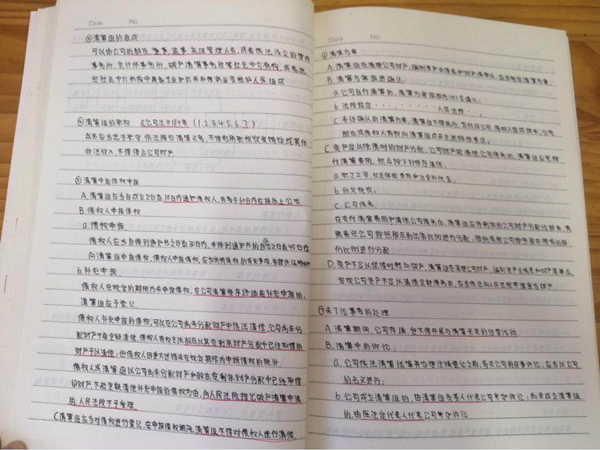 Date No
④清算组的组成
可以由公司的股东、董事、监事、高级管理人员,或者依法设立的律师
事务所、会计师事务所、破产清算事务所等社会中介机构,或者依
法社会中介机构中具备专业知识并取得执业资格的人员组成
清算组的职权 (1、2、3、4、5、6、7)
成员应当忠于职守,依法履行清算义务,不得利用职权收受贿赂或其他
非法收入,不得侵占公司财产
⑥清算中的债权申报
A.清算组应当自成立之日起10日内通知债权人,并与60日内在报纸上公告
B.债权人申报债权
a.债权申报
债权人应当自接到通知书之日起30日内,未接到通知书的自公告之日起45日内
向清算组申报债权,债权人申报债权,应当说明债权的有关事项,并提供证明材料
b.补充申报
债权人在规定的期限内未申报债权,在公司清算程序终结前补充申报的,
清算组应予登记。
债权人补充申报的债权,可以在公司尚未分配财产中依法清偿,公司尚未分
配财产不能全额清偿,债权人有权主张股东以其在剩余财产分配中已经取得的
财产予以清偿;但债权人因重大过错未在规定期限内申报债权的除外
债权人或清算组以公司尚未分配财产和股东在剩余财产分配中已经取得
的财产不能全额清偿补充申报的债权为由,向人民法院提出破产清算申请
的,人民法院不予受理
C.清算组应当对债权进行登记,在申报债权期间,清算组不得对债权人进行清偿。
Date No
⑦清算方案
A.清算组在清理公司财产,编制资产负债表和财产清单后,应当制定清算方案
B.清算方案报送确认:
a.公司自行清算的,清算方案报股东(大)会确认;
b.法院指定 人民法院
c.未经确认的清算方案,清算组不得执行,否则
C.资产足以抵债时的财产分配:公司财产能清偿公司债务的,清算组应先支
付清算费用,然后按下列顺序清偿:
a.职工工资,社会保险费用和法定补偿金
b.所欠税款;
c.公司债务。
在支付清算费用和清偿公司债务后,清算组应将剩余的公司财产分配给股东,有
限责任公司按照股东的出资比例进行分配,股份有限公司按照股东持有的股
份比例进行分配
D.资产不足以抵债时转向破产,清算组在清理公司财产,编制资产负债表和财产清单后,
发现公司资产不足以清偿全部债务的,应当依法向人民法院申请宣告破产
⑧未了结事务的处理
A.清算期间,公司存续,但不得开展与清算无关的经营活动
B.清算中的诉讼
a.公司依法清算结束并办理注销登记之前,有关公司的民事诉讼,应当以公司
的名义进行;
b.公司成立清算组的,由清算组负责人代表公司参加诉讼;尚未成立清算组
的,由原法定代表人代表公司参加诉讼